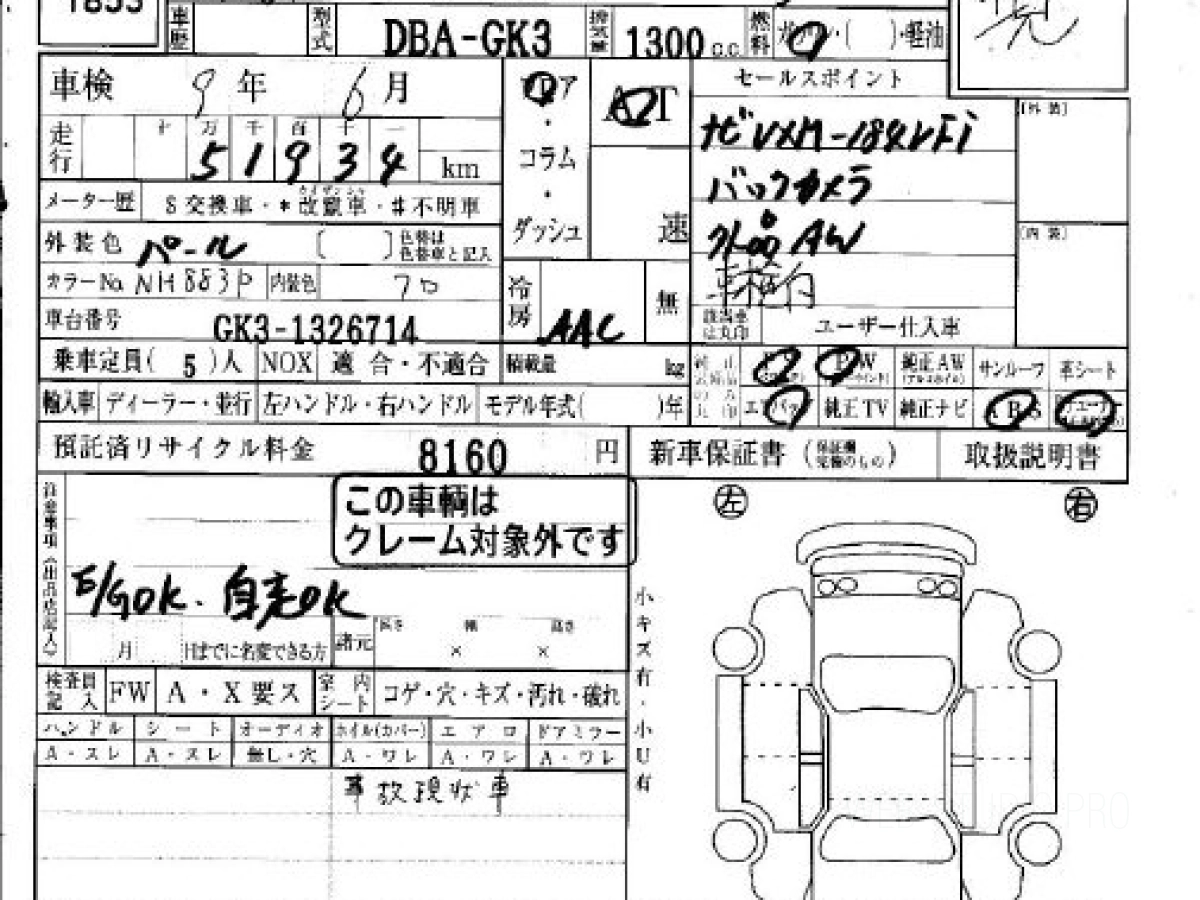 1853
車歴 型式 DBA-GK3 排気量 1300 c.c. 燃料 ・( )・軽油
車検 9年 6月
フロア・コラム・ダッシュ
AT
速
セールスポイント
ナビVXM-184VFi
バックカメラ
外品AW
車検付
【外装】
【内装】
走行 十 万 千 百 十 一
51934 km
メーター歴 $交換車・*改ざん車・#不明車
外装色 パール ( ) 色替は色替車と記入
カラーNo. NH883P 内装色 クロ
冷房 AAC 無
車台番号 GK3-1326714
該当車は丸印 ユーザー仕入庫
乗車定員( 5 )人 NOX 適合・不適合 積載量 kg
純正AW サンルーフ 革シート
輸入車 ディーラー・並行 左ハンドル・右ハンドル モデル年式( )年
エアバッグ 純正TV 純正ナビ ABS
預託済リサイクル料金 8160 円 新車保証書 取扱説明書
注意事項(出品店記入)
この車輌は
クレーム対象外です
左 右
E/Gok. 自走ok
月 日までに名変できる方 諸元 長さ × 幅 × 高さ
小キズ有・小U有
検査員記入 FW A・X要ス 室内シート コゲ・穴・キズ・汚れ・破れ
ハンドル シート オーディオ ホイル(カバー) エアロ ドアミラー
A・スレ A・スレ 無し・穴 A・ワレ A・ワレ A・ワレ
事故現状車